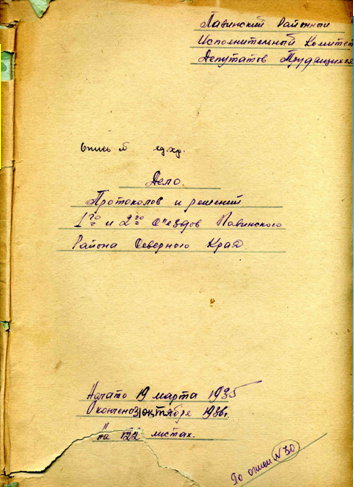 Павинский Районный
Исполнительный Комитет
Депутатов Трудящихся
Опись № ед. хр.
Дело.
Протоколов и решений
1го и 2го С"ездов Павинского
Района Северного Края
Начато 19 марта 1935
Окончено 31 октября 1936г
На 122 листах.
По описи N 30